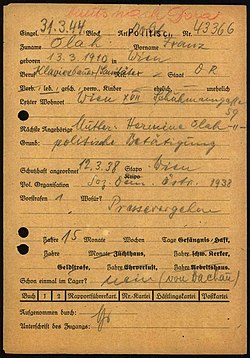 Eingel. 31.3.44 Block POLITISCH Nr. 43366
Zuname Olah Vorname Franz
geboren 13.3.1910 in Wien
Beruf Klavierbauer Staat D R
Rel.
Letzter Wohnort Wien XVII
59
Nächste Angehörige Mutter: Hermine Olah -"-
Grund: politische Betätigung
Schutzhaft angeordnet 12.3.38 Stapo Wien
Kripo
Pol. Organisation Soz. Dem. Östr. 1938
Vorstrafen 1 Wofür?
Pressevergehen
Jahre 15 Monate Wochen Tage Gefängnis/Haft,
Jahre Monate Zuchthaus, Jahre schw. Kerker,
Geldstrafe, Jahre Ehrverlust, Jahre Arbeitshaus.
Schon einmal im Lager? nein (von Dachau)
Buch 1 2 Rapportführerkart. Nr.-Kartei Häftlingskartei Postkartei
Aufgenommen durch:
Unterschrift des Zugangs: